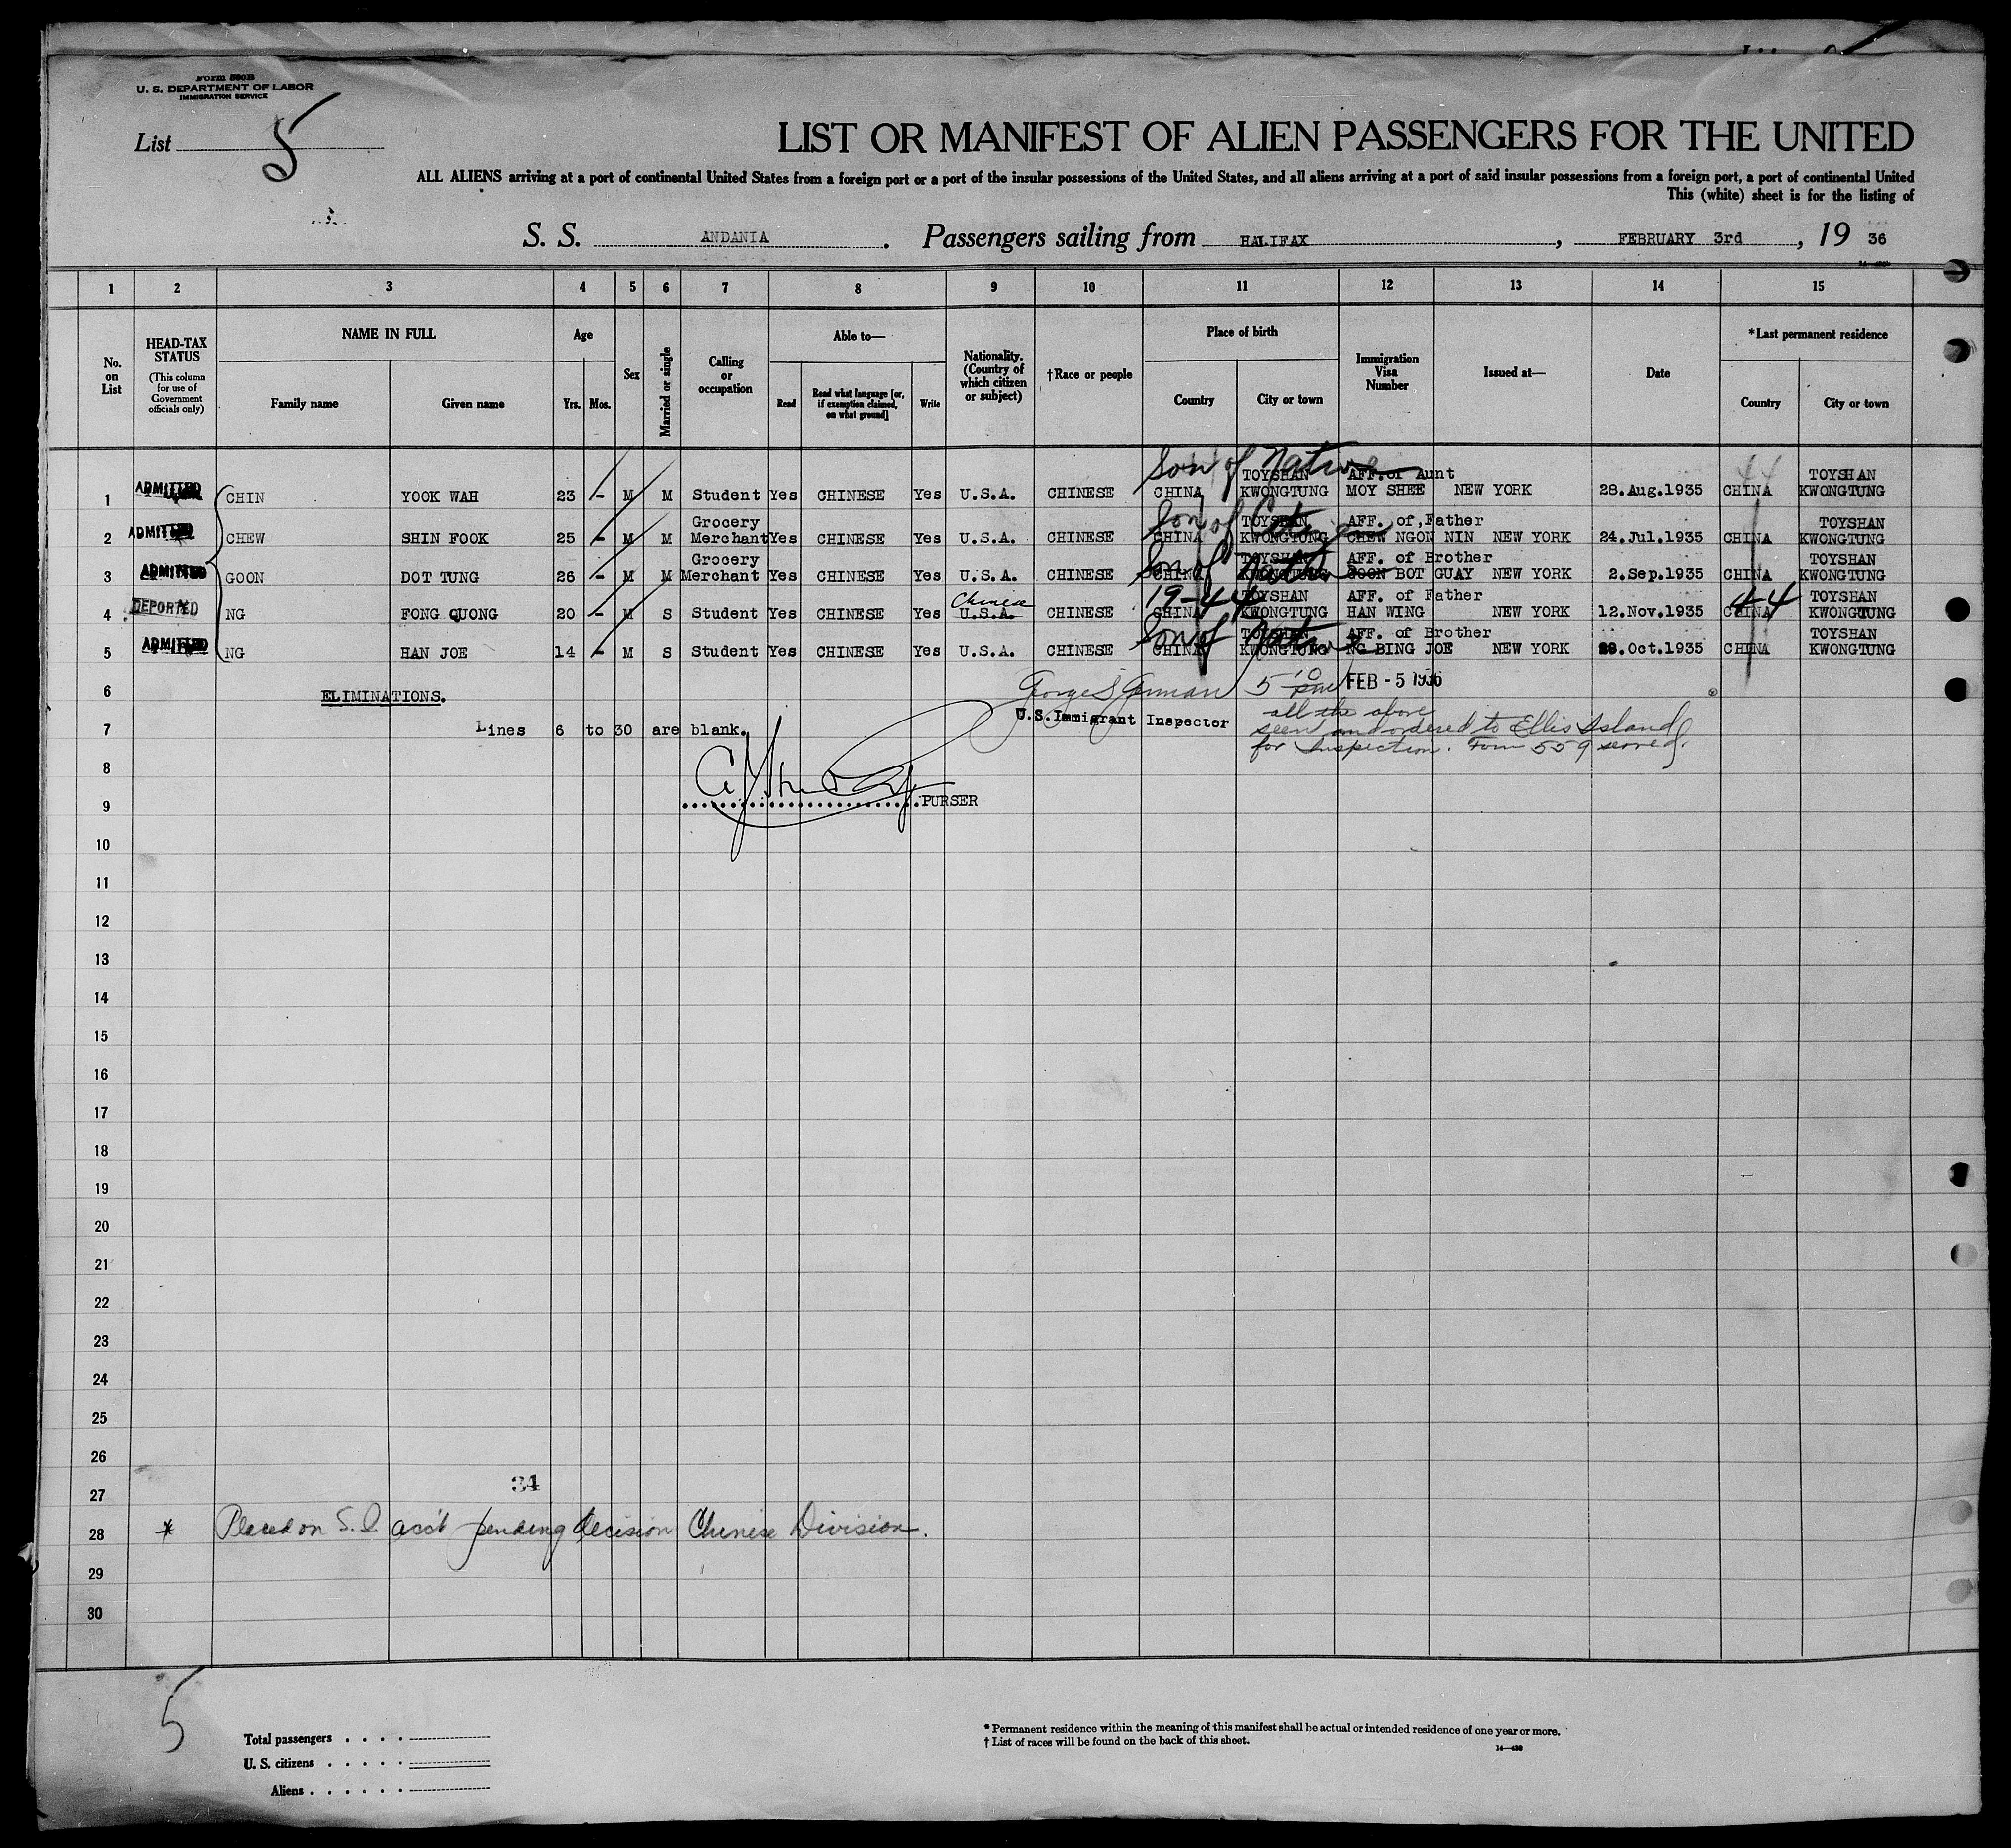 Form 500B
U. S. DEPARTMENT OF LABOR
IMMIGRATION SERVICE
List 5
LIST OR MANIFEST OF ALIEN PASSENGERS FOR THE UNITED
ALL ALIENS arriving at a port of continental United States from a foreign port or a port of the insular possessions of the United States, and all aliens arriving at a port of said insular possessions from a foreign port, a port of continental United
This (white) sheet is for the listing of
S. S. ANDANIA. Passengers sailing from HALIFAX, FEBRUARY 3rd, 19 36
1 2 3 4 5 6 7 8 9 10 11 12 13 14 15
No. on List
HEAD-TAX STATUS (This column for use of Government officials only)
NAME IN FULL
Family name
Given name
Age
Yrs. Mos.
Sex
Married or single
Calling or occupation
Able to—
Read
Read what language [or, if exemption claimed, on what ground]
Write
Nationality. (Country of which citizen or subject)
†Race or people
Place of birth
Country
City or town
Immigration Visa Number
Issued at—
Date
*Last permanent residence
Country
City or town
Son of Native
1 ADMITTED CHIN YOOK WAH 23 - M M Student Yes CHINESE Yes U.S.A. CHINESE CHINA TOYSHAN KWONGTUNG AFF. of Aunt MOY SHEE NEW YORK 28.Aug.1935 CHINA TOYSHAN KWONGTUNG
Son of
2 ADMITTED CHEW SHIN FOOK 25 - M M Grocery Merchant Yes CHINESE Yes U.S.A. CHINESE CHINA TOYSHAN KWONGTUNG AFF. of Father CHEW NGON NIN NEW YORK 24.Jul.1935 CHINA TOYSHAN KWONGTUNG
Son of Native
3 ADMITTED GOON DOT TUNG 26 - M M Grocery Merchant Yes CHINESE Yes U.S.A. CHINESE CHINA TOYSHAN KWONGTUNG AFF. of Brother GOON BOT GUAY NEW YORK 2.Sep.1935 CHINA TOYSHAN KWONGTUNG
Chinese 19-44 4-4
4 DEPORTED NG FONG QUONG 20 - M S Student Yes CHINESE Yes U.S.A. CHINESE CHINA TOYSHAN KWONGTUNG AFF. of Father HAN WING NEW YORK 12.Nov.1935 CHINA TOYSHAN KWONGTUNG
Son of Native
5 ADMITTED NG HAN JOE 14 - M S Student Yes CHINESE Yes U.S.A. CHINESE CHINA TOYSHAN KWONGTUNG AFF. of Brother NG BING JOE NEW YORK Oct.1935 CHINA TOYSHAN KWONGTUNG
6 ELIMINATIONS. 5 10 pm FEB - 5 1936
U.S. Immigrant Inspector
7 Lines 6 to 30 are blank.
all the above
seen and ordered to Ellis Island
for Inspection. Form 559 served.
8
9 PURSER
10
11
12
13
14
15
16
17
18
19
20
21
22
23
24
25
26
34
27
28 * Placed on S.I. acc't pending decision Chinese Division.
29
30
5
Total passengers
U. S. citizens
Aliens
* Permanent residence within the meaning of this manifest shall be actual or intended residence of one year or more.
† List of races will be found on the back of this sheet.